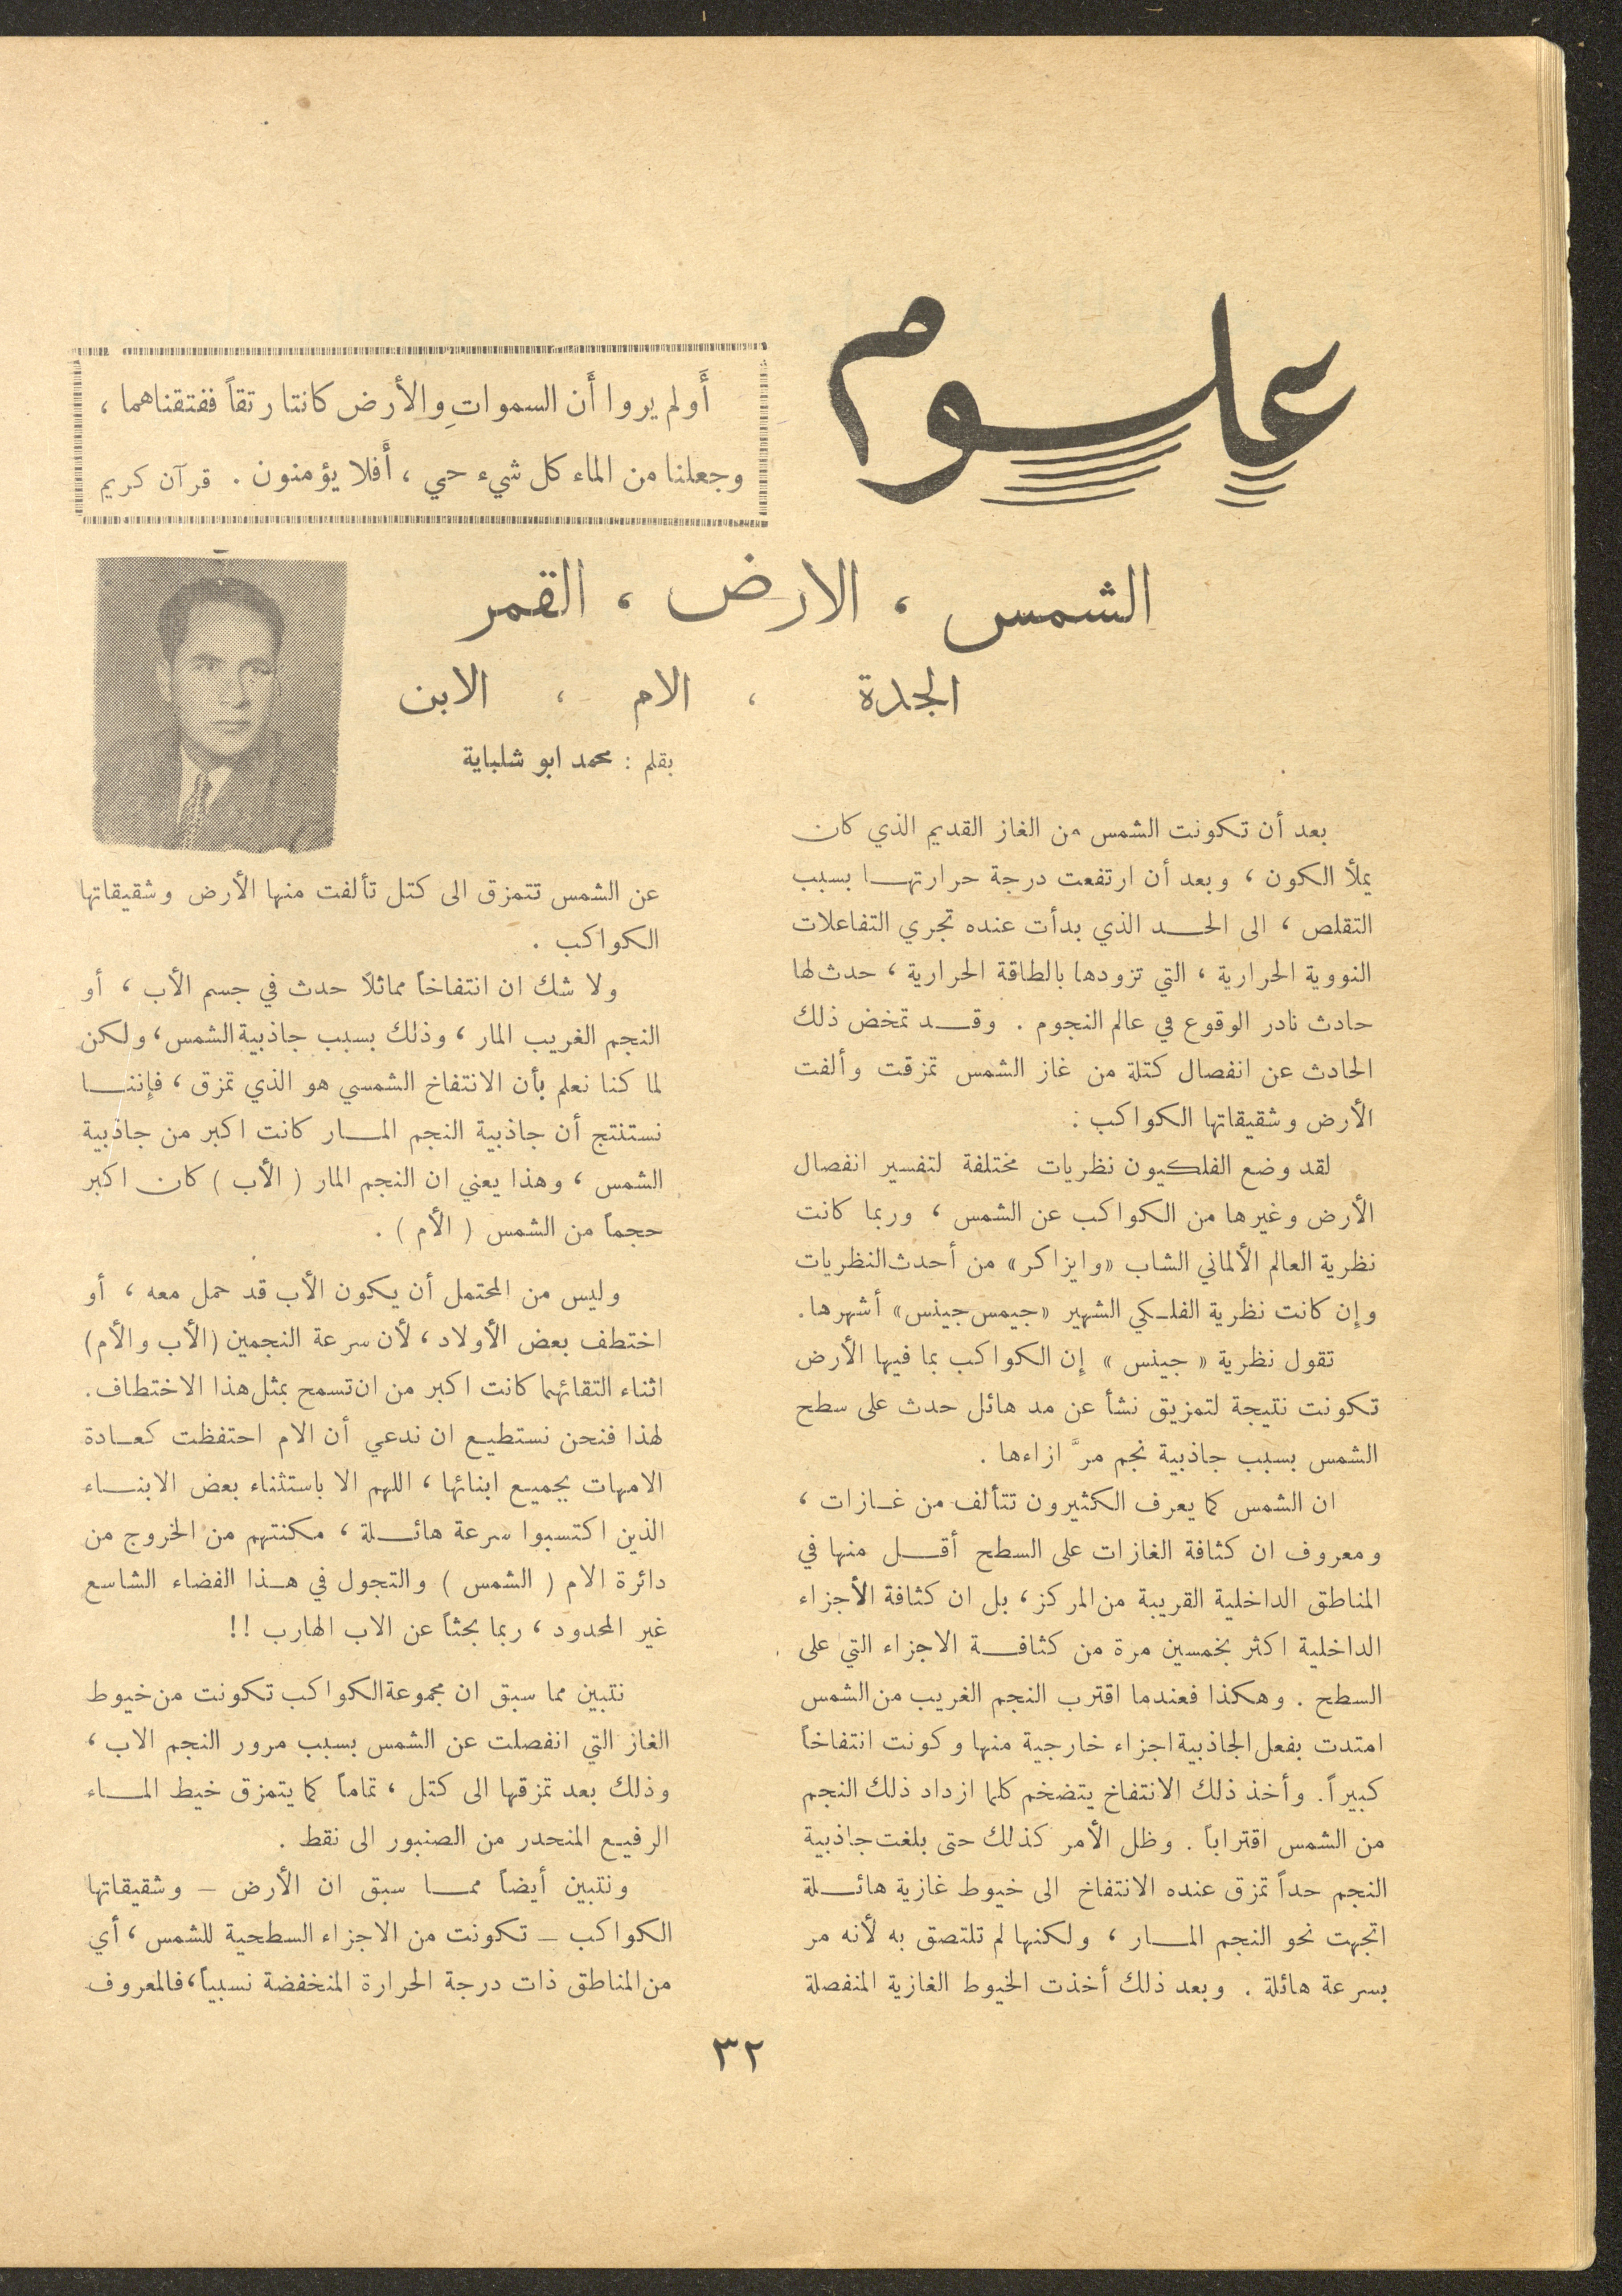 علوم
أَولم يروا أَن السمواتِ والأرض كانتا رتقاً ففتقناهما ،
وجعلنا من الماء كل شيء حي ، أَفلا يؤمنون . قرآن كريم
الشمس ، الارض ، القمر
الجدة ، الام ، الابن
بقلم : محمد ابو شلباية
بعد أن تكونت الشمس من الغاز القديم الذي كان
يملأ الكون ، وبعد أن ارتفعت درجة حرارتهـــا بسبب
التقلص ، الى الحـــد الذي بدأت عنده تجري التفاعلات
النووية الحرارية ، التي تزودها بالطاقة الحرارية ، حدث لها
حادث نادر الوقوع في عالم النجوم . وقـــد تمخض ذلك
الحادث عن انفصال كتلة من غاز الشمس تمزقت وألفت
الأرض وشقيقاتها الكواكب :
لقد وضع الفلكيون نظريات مختلفة لتفسير انفصال
الأرض وغيرها من الكواكب عن الشمس ، وربما كانت
نظرية العالم الألماني الشاب «وايزاكر» من أحدث النظريات
وإن كانت نظرية الفلـكي الشهير «جيمس جينس» أشهرها.
تقول نظرية « جينس » إن الكواكب بما فيها الأرض
تكونت نتيجة لتمزيق نشأ عن مد هائل حدث على سطح
الشمس بسبب جاذبية نجم مرَّ ازاءها .
ان الشمس كما يعرف الكثيرون تتألف من غــازات ،
ومعروف ان كثافة الغازات على السطح أقـــل منها في
المناطق الداخلية القريبة من المركز ، بل ان كثافة الأجزاء
الداخلية اكثر بخمسين مرة من كثافـــة الاجزاء التي على
السطح . وهكذا فعندما اقترب النجم الغريب من الشمس
امتدت بفعل الجاذبية اجزاء خارجية منها وكونت انتفاخاً
كبيراً. وأخذ ذلك الانتفاخ يتضخم كلما ازداد ذلك النجم
من الشمس اقتراباً . وظل الأمر كذلك حتى بلغت جاذبية
النجم حداً تمزق عنده الانتفاخ الى خيوط غازية هائـــلة
اتجهت نحو النجم المـــار ، ولكنها لم تلتصق به لأنه مر
بسرعة هائلة . وبعد ذلك أخذت الخيوط الغازية المنفصلة
عن الشمس تتمزق الى كتل تألفت منها الأرض وشقيقاتها
الكواكب .
ولا شك ان انتفاخاً مماثلاً حدث في جسم الأب ، أو
النجم الغريب المار ، وذلك بسبب جاذبية الشمس، ولكن
لما كنا نعلم بأن الانتفاخ الشمسي هو الذي تمزق ، فإننـــا
نستنتج أن جاذبية النجم المـــار كانت اكبر من جاذبية
الشمس ، وهذا يعني ان النجم المار ( الأب ) كان اكبر
حجماً من الشمس ( الأم ) .
وليس من المحتمل أن يكون الأب قد حمل معه ، أو
اختطف بعض الأولاد ، لأن سرعة النجمين (الأب والأم)
اثناء التقائهما كانت اكبر من ان تسمح بمثل هذا الاختطاف.
لهذا فنحن نستطيـع ان ندعي أن الام احتفظت كعــادة
الامهات بجميـع ابنائها ، اللهم الا باستثناء بعض الابنـــاء
الذين اكتسبوا سرعة هائـــلة ، مكنتهم من الخروج من
دائرة الام ( الشمس ) والتجول في هــذا الفضاء الشاسع
غير المحدود ، ربما بحثاً عن الاب الهارب !!
نتبين مما سبق ان مجموعة الكواكب تكونت من خيوط
الغاز التي انفصلت عن الشمس بسبب مرور النجم الاب ،
وذلك بعد تمزقها الى كتل ، تماماً كما يتمزق خيط المـــاء
الرفيـع المنحدر من الصنبور الى نقط .
ونتبين أيضاً ممـــا سبق ان الأرض – وشقيقاتها
الكواكب – تكونت من الاجزاء السطحية للشمس ، أي
من المناطق ذات درجة الحرارة المنخفضة نسبياً، فالمعروف
٣٢